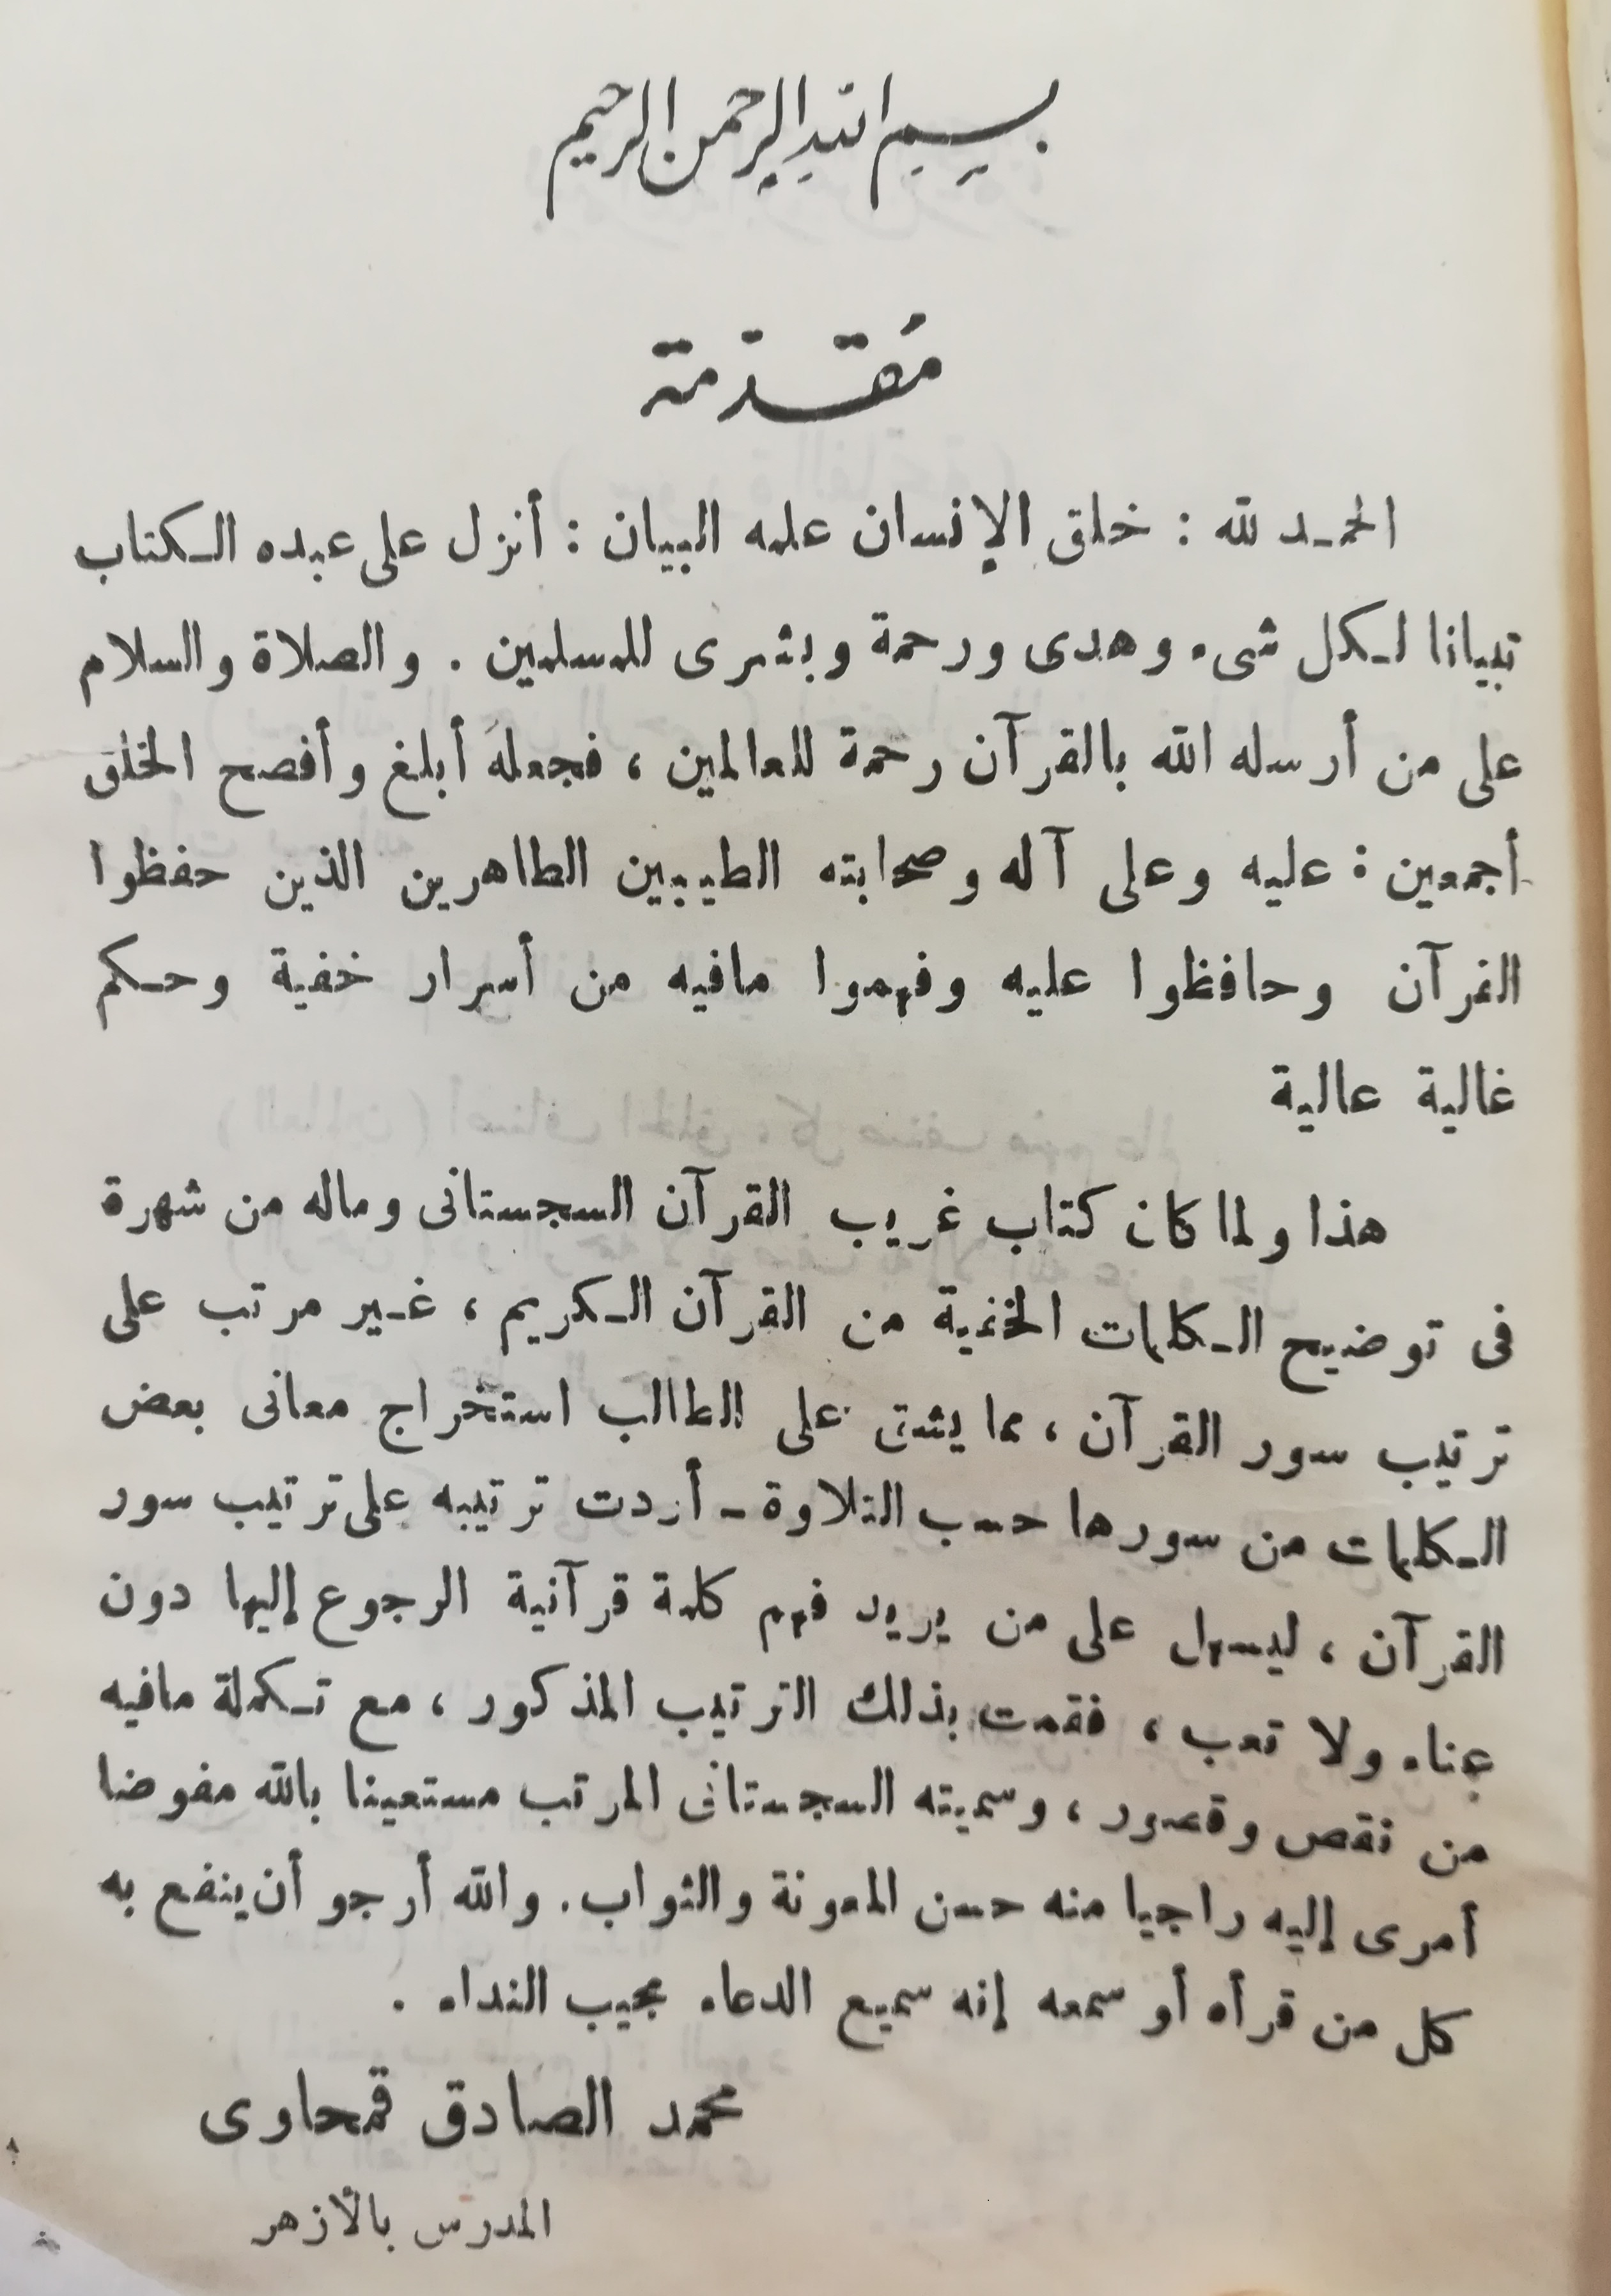 بسم الله الرحمن الرحيم
مُقدّمة
الحمد لله : خلق الإنسان علمه البيان : أنزل على عبده الكتاب
تبيانا لكل شىء وهدى ورحمة وبشرى للمسلمين . والصلاة والسلام
على من أرسله الله بالقرآن رحمة للعالمين ، فجعله أبلغ وأفصح الخلق
أجمعين : عليه وعلى آله وصحابته الطيبين الطاهرين الذين حفظوا
القرآن وحافظوا عليه وفهموا مافيه من أسرار خفية وحكم
غالية عالية
هذا ولما كان كتاب غريب القرآن السجستانى وماله من شهرة
فى توضيح الكلمات الخفية من القرآن الكريم ، غير مرتب على
ترتيب سور القرآن ، مما يشق على الطالب استخراج معانى بعض
الكلمات من سورها حسب التلاوة - أردت ترتيبه على ترتيب سور
القرآن ، ليسهل على من يريد فهم كلمة قرآنية الرجوع إليها دون
عناء ولا تعب ، فقمت بذلك الترتيب المذكور ، مع تكملة مافيه
من نقص وقصور ، وسميته السجستانى المرتب مستعينا بالله مفوضا
أمرى إليه راجيا منه حسن المعونة والثواب . والله أرجو أن ينفع به
كل من قرأه أو سمعه إنه سميع الدعاء مجيب النداء .
محمد الصادق قمحاوى
المدرس بالأزهر